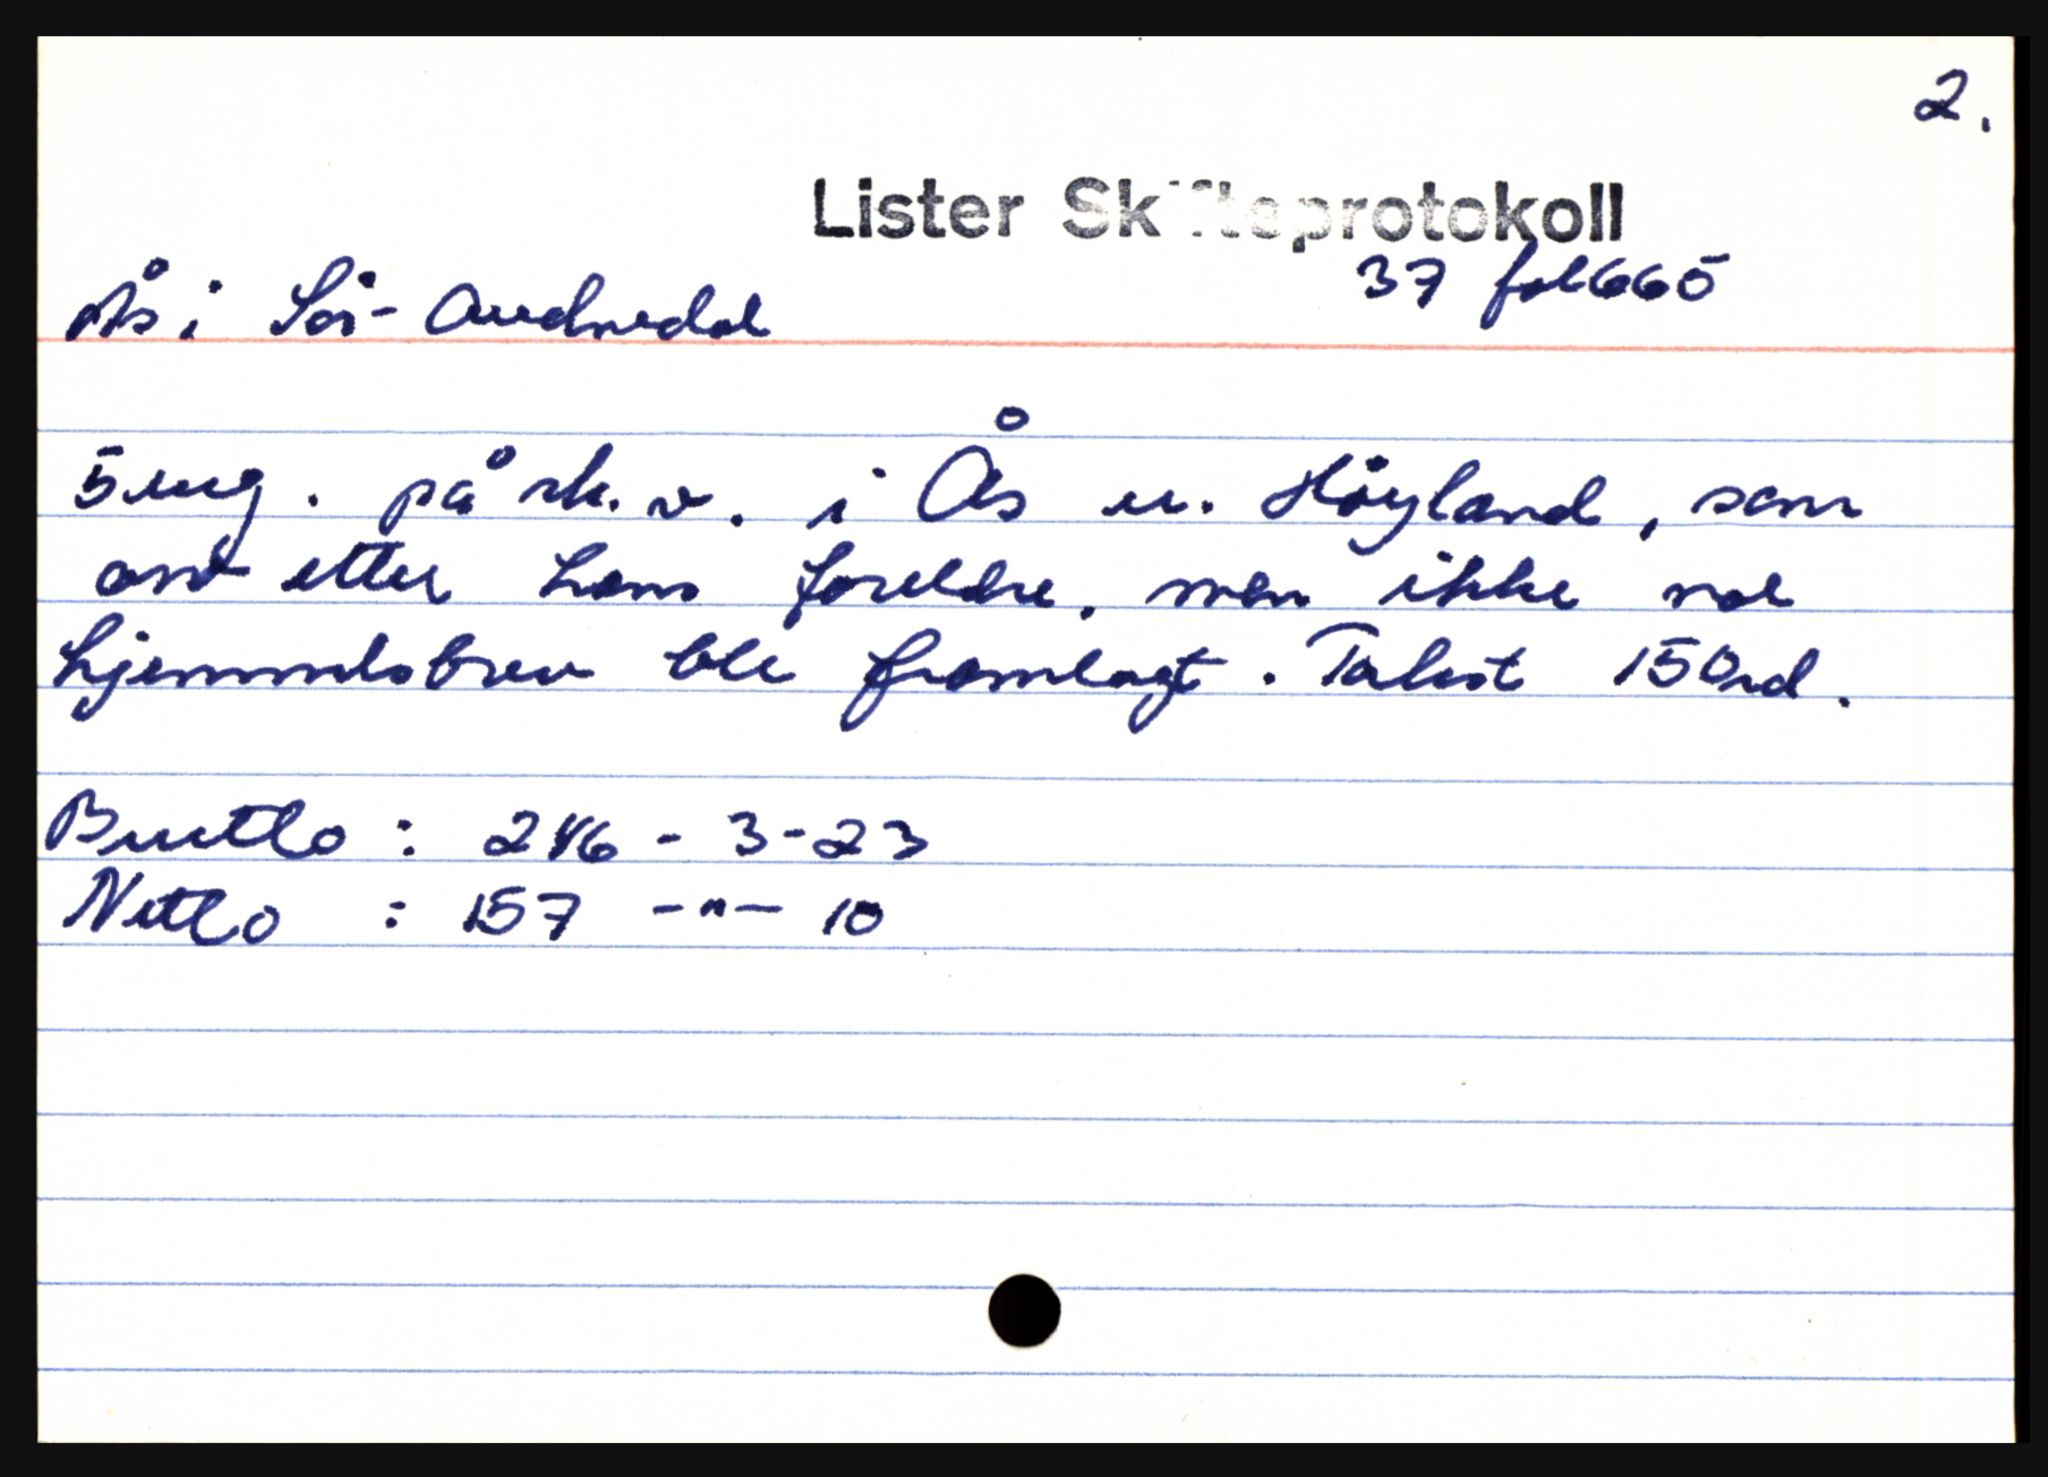 2.
Lister Skifteprotokoll
37 fol 665
Ås i Sør-Audnedal
5 eng. på sk. v. i Ås u. Høyland, som
arvt etter hans foreldre, men ikke noe
hjemmelsbrev ble framlagt. Takst 150 rd.
Brutto : 246 - 3 - 23
Netto : 157 -"- 10